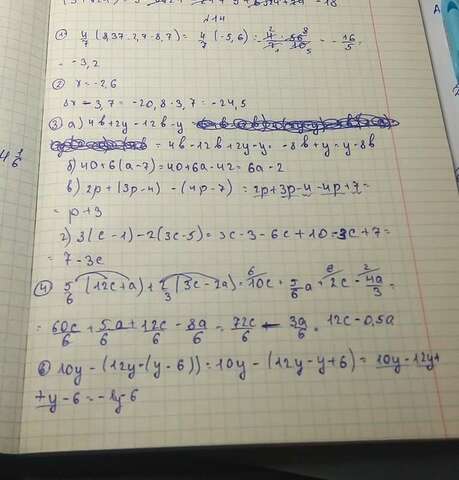 №14
① 4/7 (8,37 : 2,7 - 8,7) = 4/7 (-5,6) = - 4/7 · 56/10 = - 16/5 =
= -3,2
② x = -2,6
8x - 3,7 = -20,8 - 3,7 = -24,5
③ а) 4b + 2y - 12b - y =
= 4b - 12b + 2y - y = -8b + y = y - 8b
б) 40 + 6(a - 7) = 40 + 6a - 42 = 6a - 2
в) 2p + (3p - 4) - (4p - 7) = 2p + 3p - 4 - 4p + 7 =
= p + 3
г) 3(c - 1) - 2(3c - 5) = 3c - 3 - 6c + 10 = -3c + 7 =
= 7 - 3c
④ 5/6 (12c + a) + 2/3 (3c - 2a) = 10c + 5/6 a + 2c - 4a/3 =
= 60c/6 + 5a + 12c/6 - 8a/6 = 72c/6 - 3a/6 = 12c - 0,5a
10y - (12y - (y - 6)) = 10y - (12y - y + 6) = 10y - 12y +
+ y - 6 = - y - 6
4 1/6